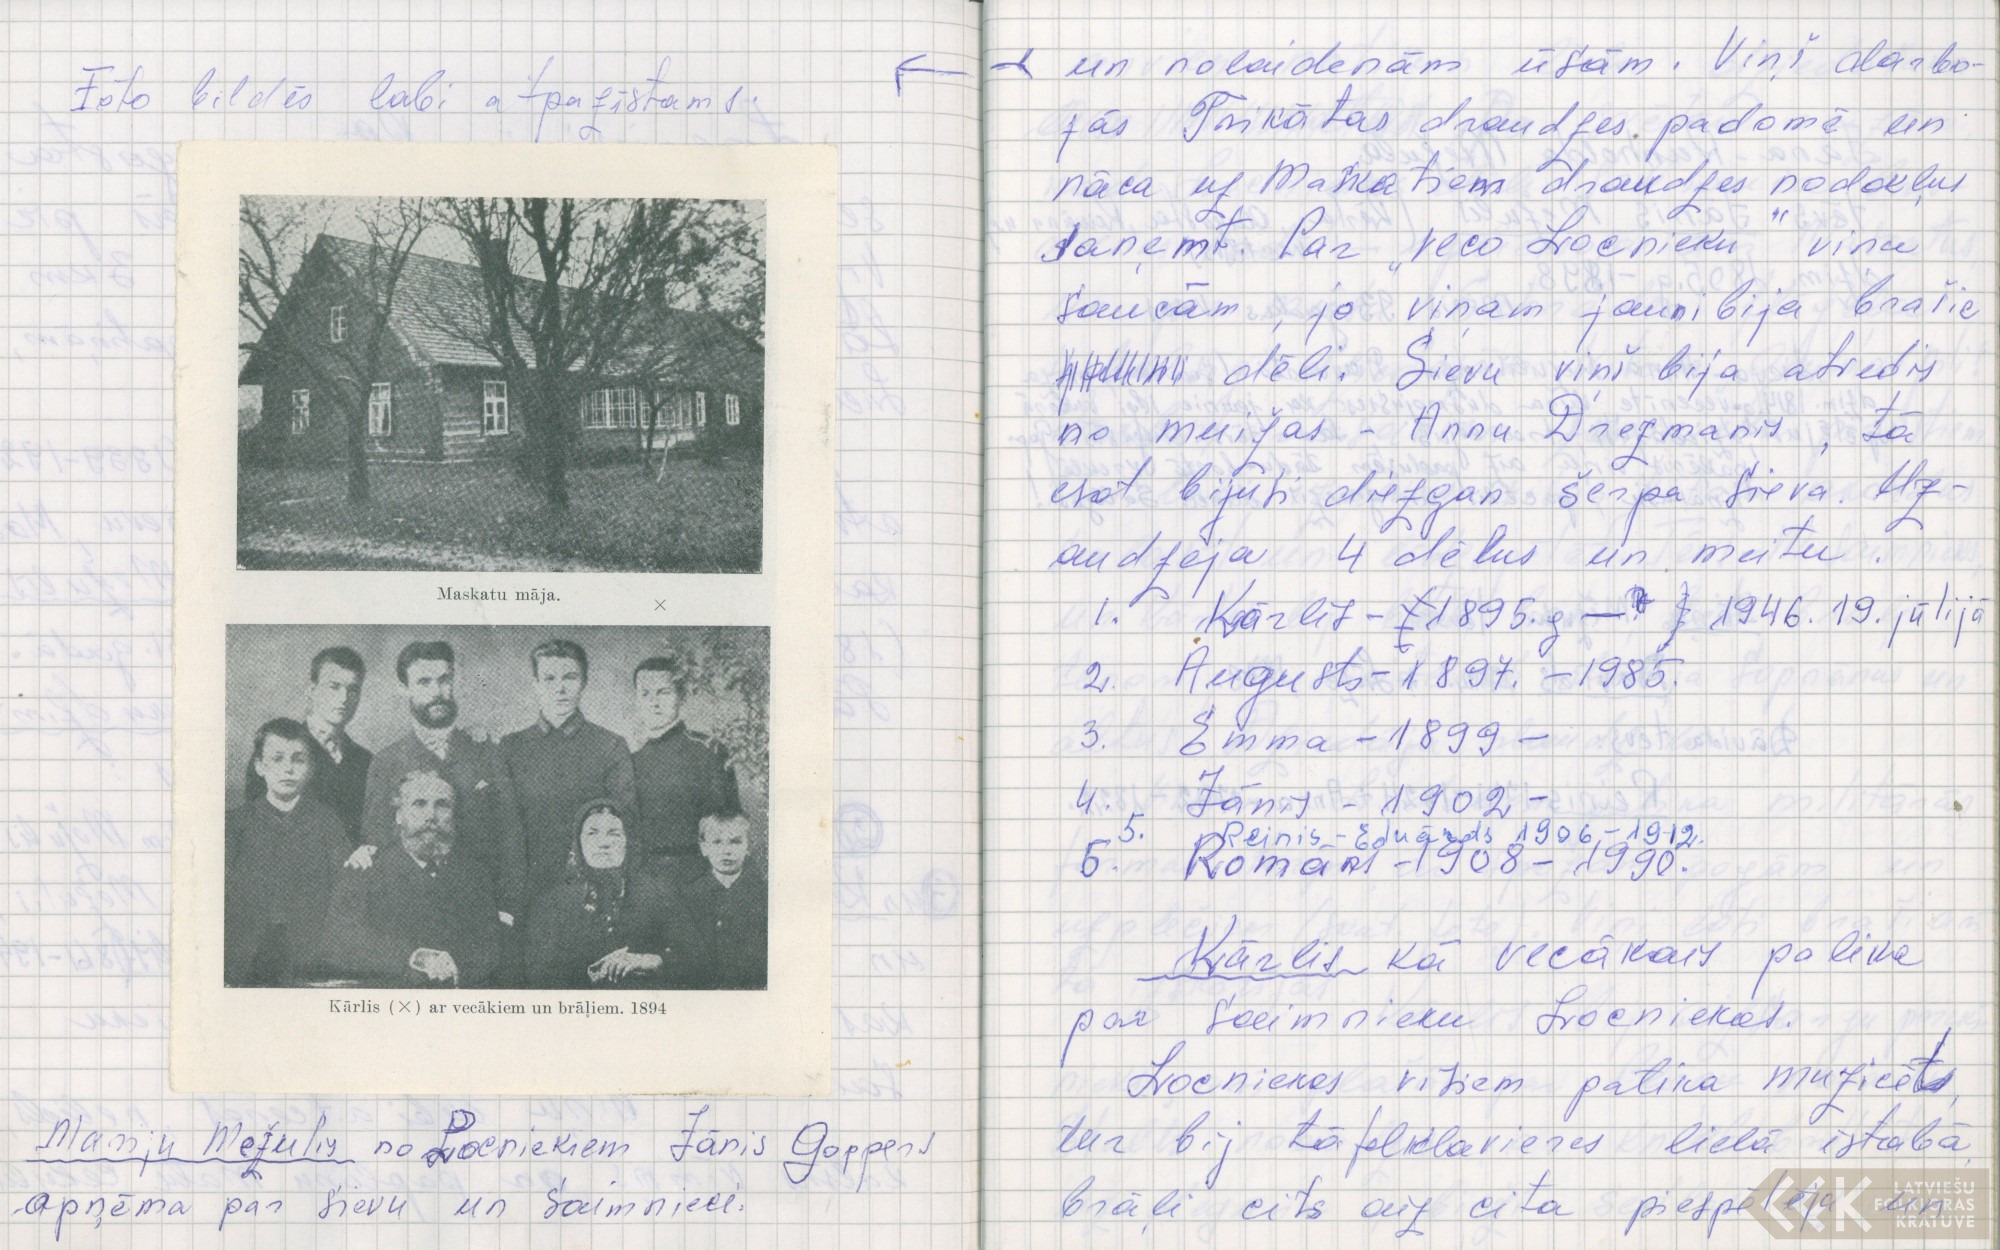 Foto bildēs labi atpazīstams.
Maskatu māja.
×
Kārlis (×) ar vecākiem un brāļiem. 1894
Mariju Mežulis no Ločniekiem Jānis Goppers
apņēma par sievu un saimnieci.
un nolaidenām ūsām. Viņš darbo-
jās Trikātas draudzes padomē un
nāca uz Maskatiem draudzes nodokļus
saņemt. Par "veco Ločnieku" viņu
saucām, jo viņam jauni bija brašie
dēli. Sievu viņš bija atvedis
no muižas - Annu Drezmanis, tā
esot bijusi diezgan šerpa sieva. Uz-
audzēja 4 dēlus un meitu.
1. Kārlis - 1895. g. — 1946. 19. jūlijā
2. Augusts - 1897. - 1985.
3. Emma - 1899 -
4. Jānis - 1902 -
5. Reinis - Eduards 1906 - 1912.
6. Romāns - 1908 - 1990.
Kārlis kā vecākais palika
par saimnieku Ločniekos.
Ločniekos visiem patika muzicēt,
tur bij tāfelklavieres lielā istabā,
brāļi cits aiz cita piespēlēja un
LATVIEŠU
FOLKLORAS
KRĀTUVE